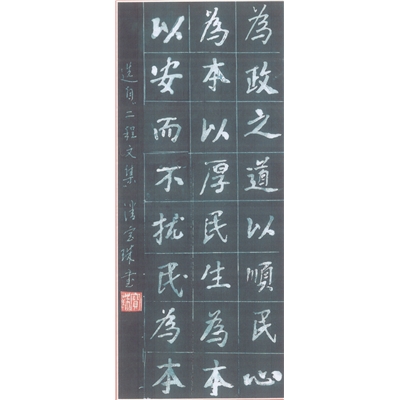 為政之道以順民心
為本以厚民生為本
以安而不扰民為本
選自二程文集 潘宝珠書